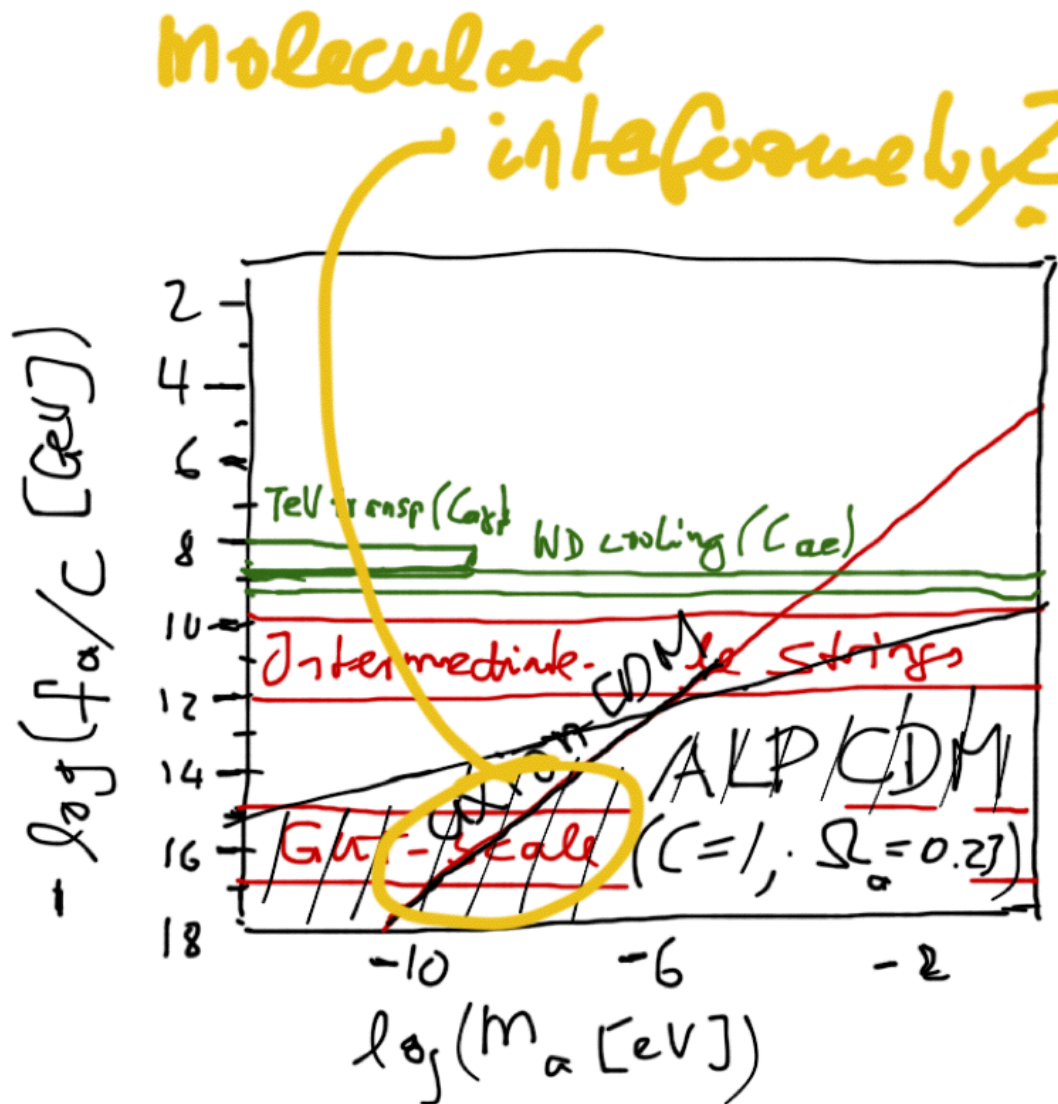 Molecular
interferometry?
- log (fa/C [GeV])
2
4
6
TeV transp (Caγ)
8
WD cooling (Cae)
10
Intermediate- le strings
12
axion CDM
14
ALP CDM
16
GUT-scale
(C=1, Ωa=0.23)
18
-10
-6
-2
log (ma [eV])